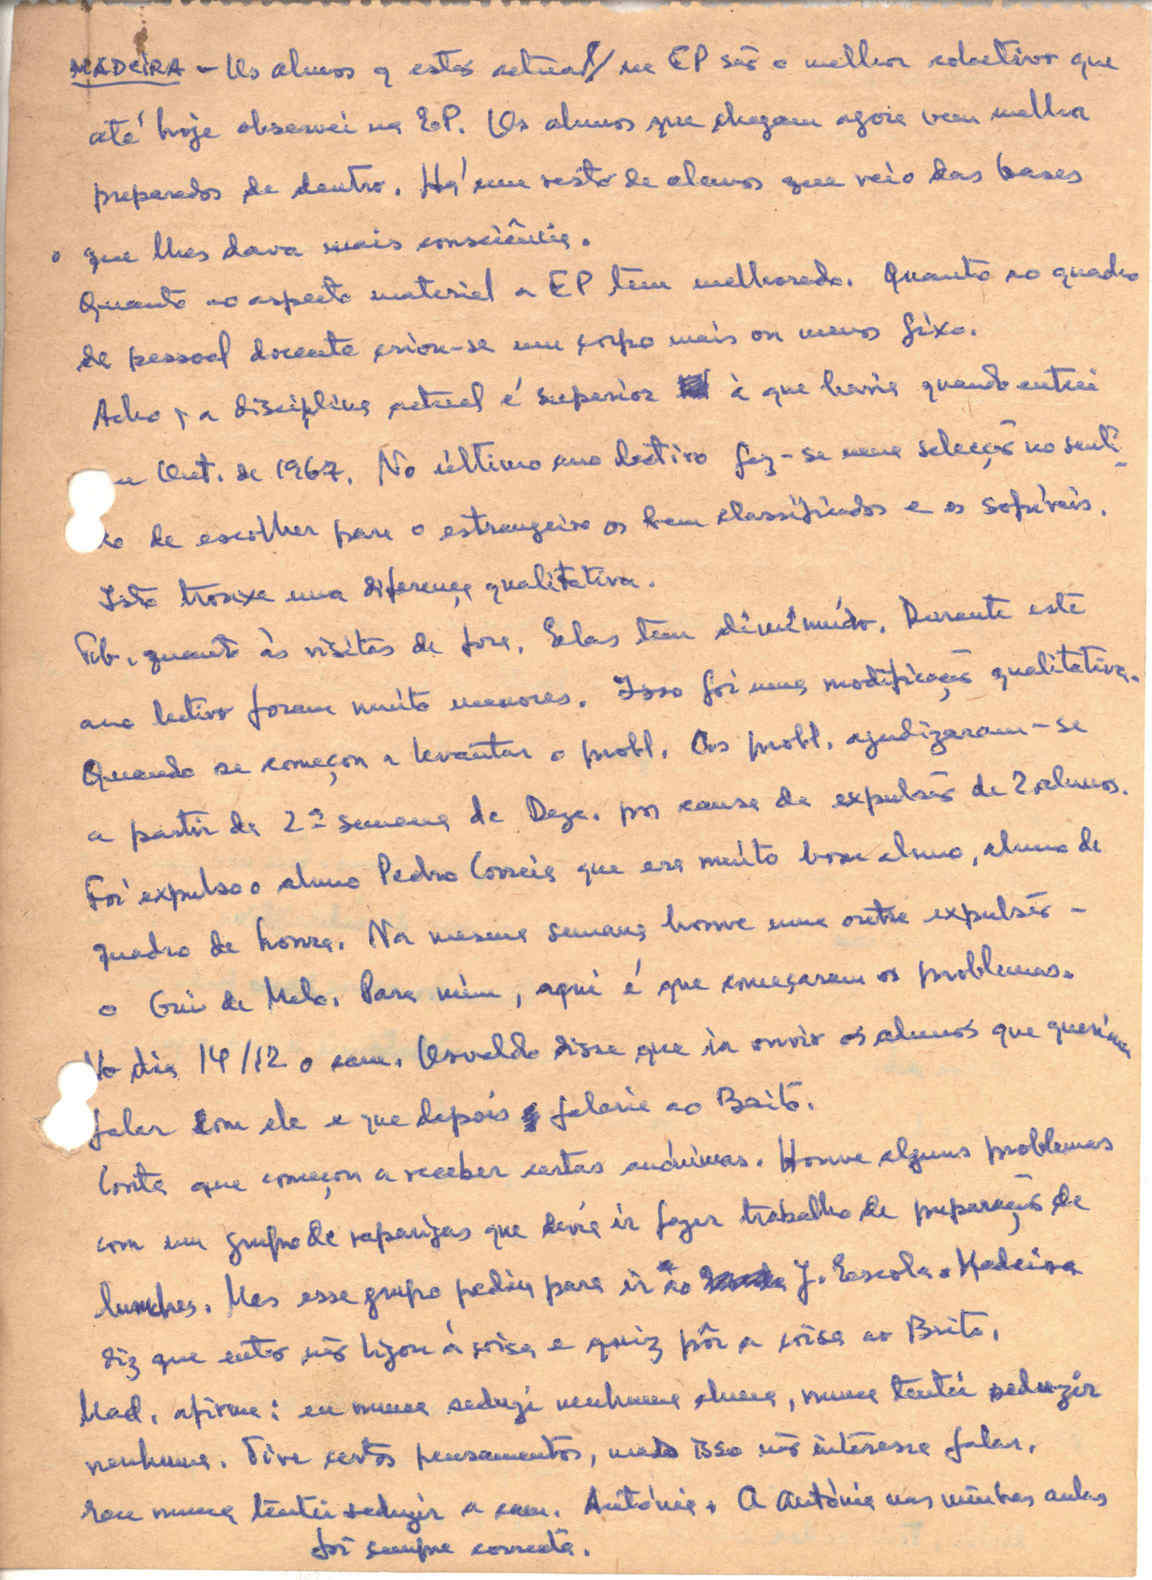 MADEIRA - Os alunos q estão actual/ na EP são o melhor colectivo que
até hoje observei na EP. Os alunos que chegam agora vem melhor
preparados de dentro. Há um resto de alunos que veio das bases
o que lhes dava mais consciência.
Quanto ao aspecto material a EP tem melhorado. Quanto ao quadro
de pessoal docente criou-se um corpo mais ou menos fixo.
Acho q a disciplina actual é superior à que havia quando entrei
Out. de 1967. No último ano lectivo fez-se uma selecção no senti-
do de escolher para o estrangeiro os bem classificados e os sofríveis.
Isto trouxe uma diferença qualitativa.
Tb. quanto às visitas de fora. Elas tem diminuído. Durante este
ano lectivo foram muito menores. Isso foi uma modificação qualitativa.
Quando se começou a levantar o probl. Os probl. agudizaram-se
a partir da 2ª semana de Deze. por causa da expulsão de 2 alunos.
Foi expulso o aluno Pedro Correia que era muito bom aluno, aluno de
quadro de honra. Na mesma semana houve uma outra expulsão -
o Gui de Melo. Para mim, aqui é que começaram os problemas.
No dia 14/12 o cam. Osvaldo disse que ia ouvir os alunos que queriam
falar com ele e que depois falaria ao Brito.
Conta que começou a receber cartas anónimas. Houve alguns problemas
com um grupo de raparigas que devia ir fazer trabalho de preparação de
lunches. Mas esse grupo pediu para ir ao J. Escola. Madeira
diz que então não ligou à coisa e quiz pôr a coisa ao Brito.
Mad. afirma: eu nunca seduzi nenhuma aluna, nunca tentei seduzir
nenhuma. Tive certos pensamentos, mas isso não interessa falar.
Eeu nunca tentei seduzir a cam. Antónia. A Antónia nas minhas aulas
foi sempre correcta.